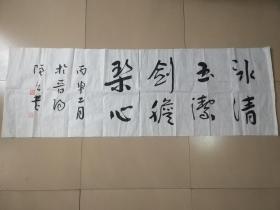 冰清
玉潔
劍膽
琴心
丙申二月
於晉陽